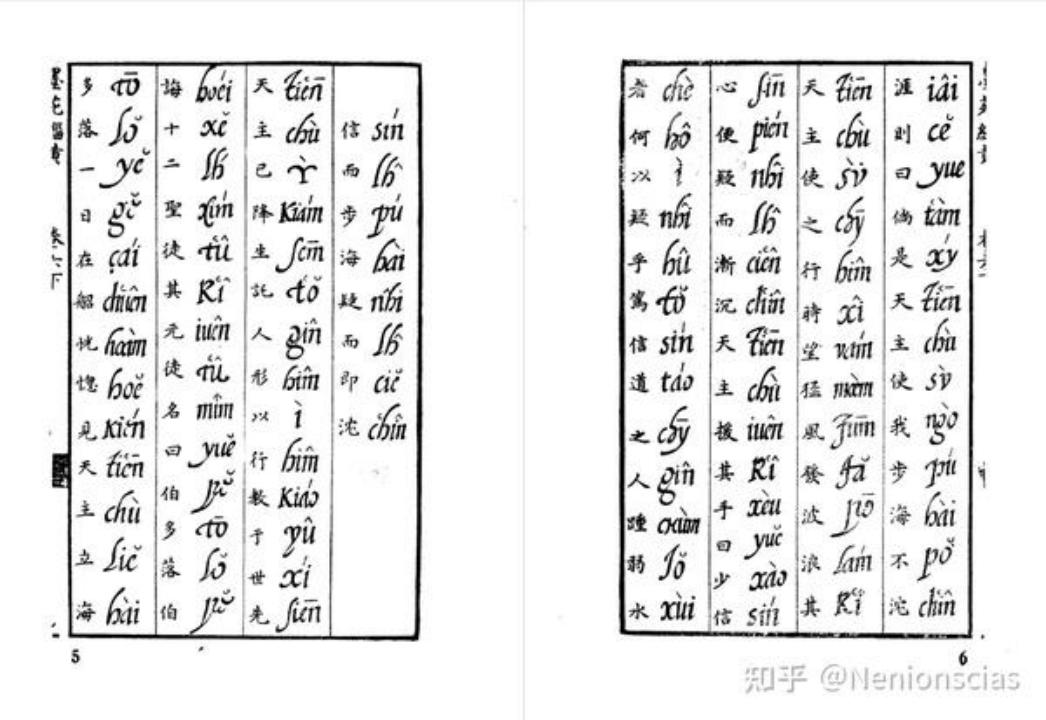 信 sín 而 lh̑ 步 pú 海 hài 疑 nhî 而 lh̑ 即 ciĕ 沉 chîn
天 tiēn 主 chù 已 ì 降 kiám 生 sēm 託 tŏ 人 gîn 形 hîm 以 ì 行 hîm 教 kiáo 于 yû 世 xí 先 siēn
誨 hoéi 十 xĕ 二 lh́ 聖 xím 徒 tû 其 kî 元 iuên 徒 tû 名 mîm 曰 yuĕ 伯 pĕ 多 tō 落 lŏ 伯 pĕ
多 tō 落 lŏ 一 yĕ 日 gĕ 在 çái 船 chuên 恍 hoàm 惚 hoĕ 見 kién 天 tiēn 主 chù 立 liĕ 海 hài
涯 iâi 則 cĕ 曰 yue 倘 tàm 是 xý 天 tiēn 主 chù 使 sù 我 ngò 步 pú 海 hài 不 pŏ 沉 chîn
天 tiēn 主 chù 使 sù 之 cħy̅ 行 hîm 時 xî 望 vám 猛 màm 風 fūm 發 fă 波 pō 浪 lám 其 kî
心 sīn 便 pién 疑 nhî 而 lh̑ 漸 cién 沉 chîn 天 tiēn 主 chù 援 iuên 其 kî 手 xèu 曰 yuĕ 少 xào 信 sín
者 chè 何 hô 以 ì 疑 nhî 乎 hû 篤 tŏ 信 sín 道 táo 之 cħy̅ 人 gîn 踵 chùm 弱 jŏ 水 xùi
5
6
知乎 @Nenionscias